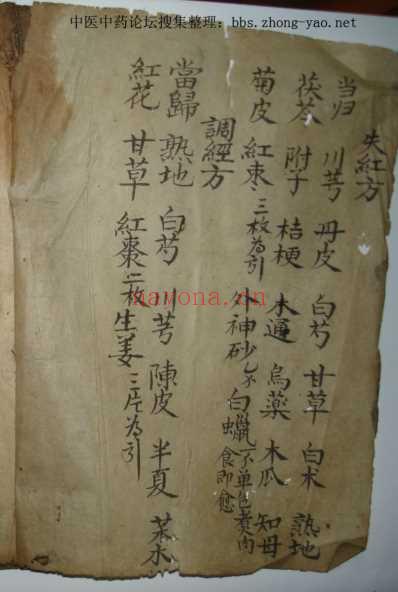 中医中药论坛搜集整理：bbs.zhong-yao.net
失紅方
当归 川芎 丹皮 白芍 甘草 白术 熟地
茯苓 附子 桔梗 木通 烏薬 木瓜 知母
菊皮 紅枣三枚為引 外神砂 白蠟 不单包煮肉食即愈
調經方
當歸 熟地 白芍 川芎 陳皮 半夏
紅花 甘草 紅棗二枚 生姜三片為引
nayona.cn